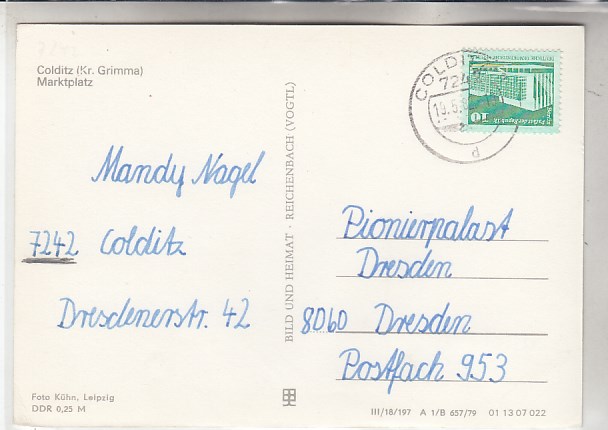 Colditz (Kr. Grimma)
Marktplatz
Mandy Nagel
7242 Colditz
Dresdenerstr. 42
Foto Kühn, Leipzig
DDR 0,25 M
BILD UND HEIMAT · REICHENBACH (VOGTL)
COLDITZ
10
Pionierpalast
Dresden
8060 Dresden
Postfach 953
III/18/197 A 1/B 657/79 01 13 07 022